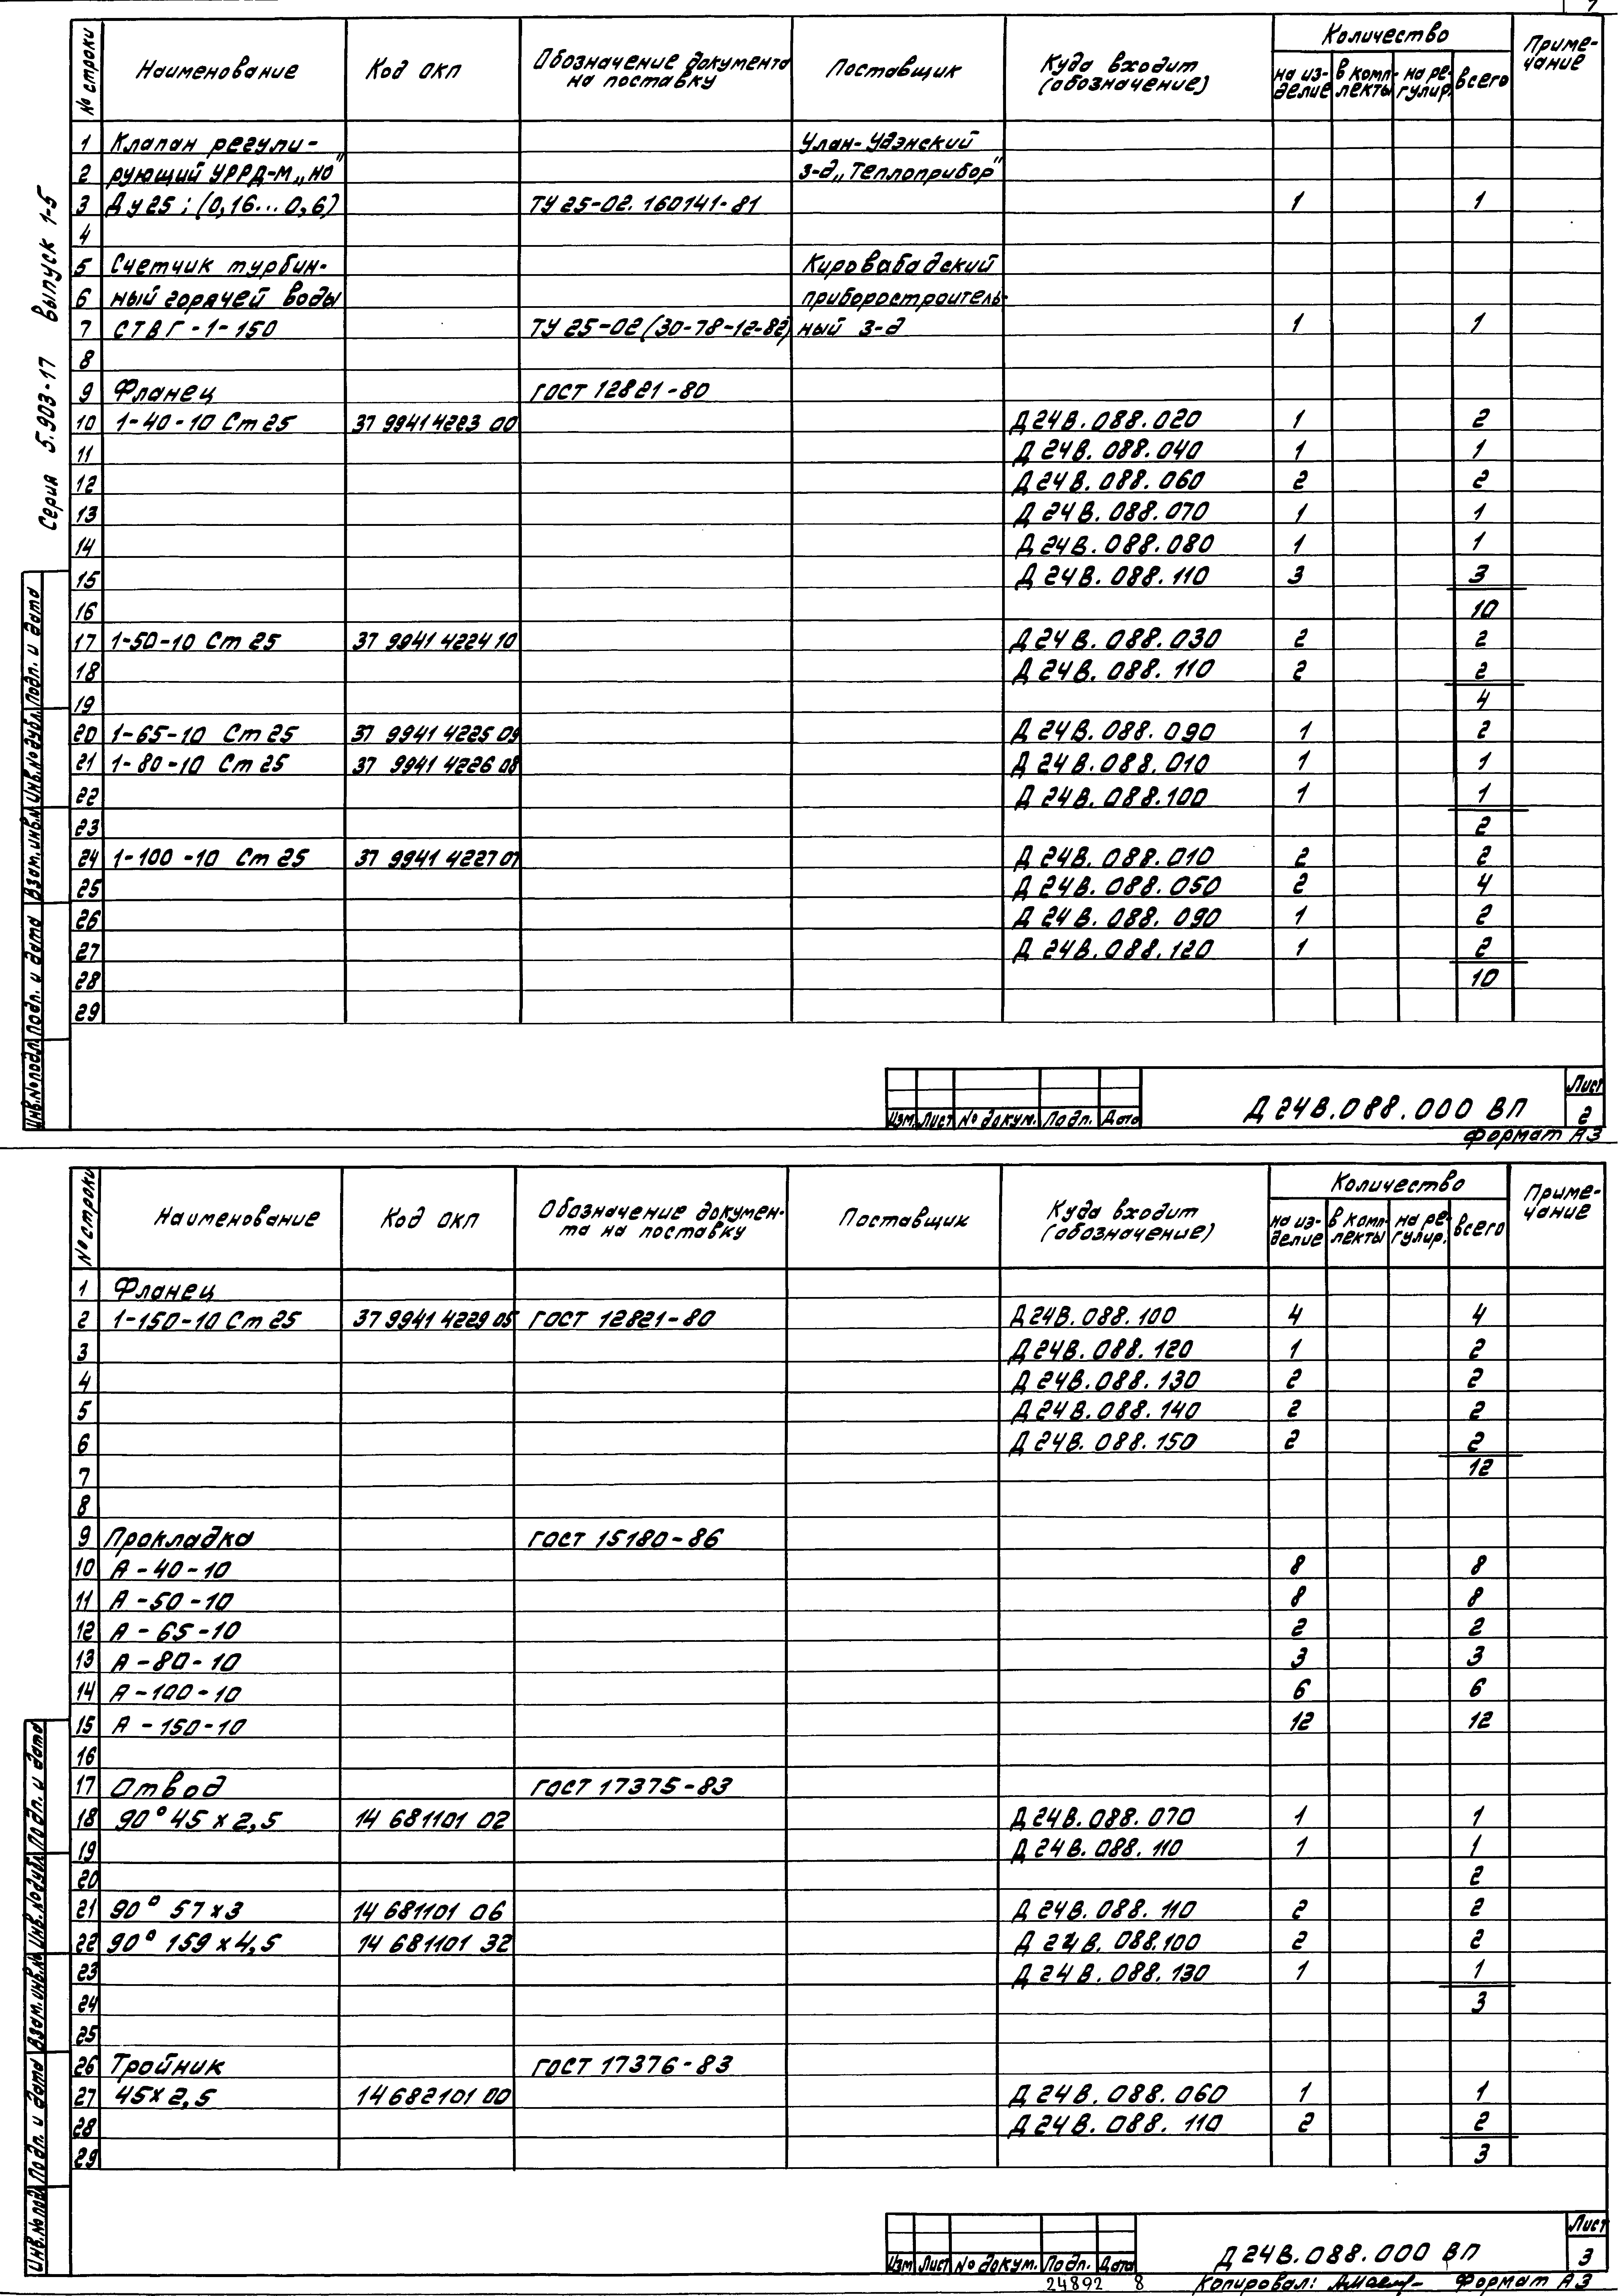 7
Серия 5.903-17 Выпуск 1-5
№ строки Наименование Код ОКП Обозначение документа на поставку Поставщик Куда входит (обозначение) Количество Примечание
на изделие в комплекты на регулир. всего
1 Клапан регули- Улан-Удэнский
2 рующий УРРД-М „НО" з-д „Теплоприбор"
3 Ду 25; (0,16...0,6) ТУ 25-02.160141-81 1 1
4
5 Счетчик турбин- Кировабадский
6 ный горячей воды приборостроитель-
7 СТВГ-1-150 ТУ 25-02(30-78-12-82) ный з-д 1 1
8
9 Фланец ГОСТ 12821-80
10 1-40-10 Ст 25 37 9941 4223 00 Д24В.088.020 1 2
11 Д24В.088.040 1 1
12 Д24В.088.060 2 2
13 Д24В.088.070 1 1
14 Д24В.088.080 1 1
15 Д24В.088.110 3 3
16 10
17 1-50-10 Ст 25 37 9941 4224 10 Д24В.088.030 2 2
18 Д24В.088.110 2 2
19 4
20 1-65-10 Ст 25 37 9941 4225 09 Д24В.088.090 1 2
21 1-80-10 Ст 25 37 9941 4226 08 Д24В.088.010 1 1
22 Д24В.088.100 1 1
23 2
24 1-100-10 Ст 25 37 9941 4227 07 Д24В.088.010 2 2
25 Д24В.088.050 2 4
26 Д24В.088.090 1 2
27 Д24В.088.120 1 2
28 10
29
Инв.№ подл. Подп. и дата Взам.инв.№ Инв.№ дубл. Подп. и дата
Изм. Лист № докум. Подп. Дата
Д24В.088.000 ВП
Лист
2
Формат А3
№ строки Наименование Код ОКП Обозначение документа на поставку Поставщик Куда входит (обозначение) Количество Примечание
на изделие в комплекты на регулир. всего
1 Фланец
2 1-150-10 Ст 25 37 9941 4229 05 ГОСТ 12821-80 Д24В.088.100 4 4
3 Д24В.088.120 1 2
4 Д24В.088.130 2 2
5 Д24В.088.140 2 2
6 Д24В.088.150 2 2
7 12
8
9 Прокладка ГОСТ 15180-86
10 А-40-10 8 8
11 А-50-10 8 8
12 А-65-10 2 2
13 А-80-10 3 3
14 А-100-10 6 6
15 А-150-10 12 12
16
17 Отвод ГОСТ 17375-83
18 90° 45х2,5 14 681101 02 Д24В.088.070 1 1
19 Д24В.088.110 1 1
20 2
21 90° 57х3 14 681101 06 Д24В.088.110 2 2
22 90° 159х4,5 14 681101 32 Д24В.088.100 2 2
23 Д24В.088.130 1 1
24 3
25
26 Тройник ГОСТ 17376-83
27 45х2,5 14 682101 00 Д24В.088.060 1 1
28 Д24В.088.110 2 2
29 3
Инв.№ подл. Подп. и дата Взам.инв.№ Инв.№ дубл. Подп. и дата
Изм. Лист № докум. Подп. Дата
Д24В.088.000 ВП
Лист
3
24892 8
Копировал: Формат А3